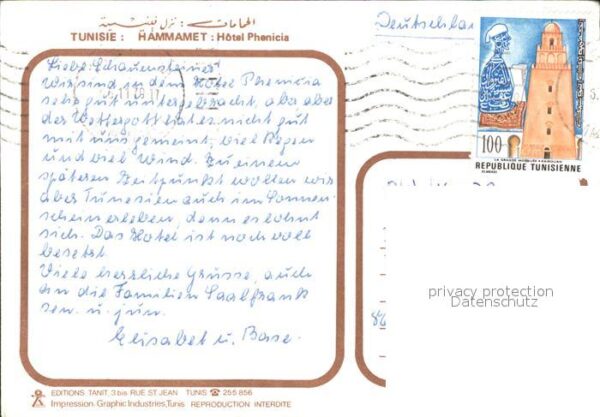 الحمامات : نزل فينيسية
TUNISIE : HAMMAMET : Hôtel Phenicia
Deutschland
Liebe Schauensteiner
Wir sind in dem Hotel Phenicia
sehr gut untergebracht, aber aber
der Wettergott hat es nicht gut
mit uns gemeint, viel Regen
und viel Wind. Zu einem
späteren Zeitpunkt wollen wir
aber Tunesien auch im Sonnen-
schein erleben, denn es lohnt
sich. Das Hotel ist noch voll
besetzt.
Viele herzliche Grüsse, auch
an die Familien Saalfrank
sen. u. jun.
Elisabet u. Base.
100
LA GRANDE MOSQUÉE KAIROUAN
REPUBLIQUE TUNISIENNE
privacy protection
Datenschutz
86
EDITIONS TANIT, 3 bis RUE ST JEAN TUNIS ☎ 255 856
Impression. Graphic Industries, Tunis REPRODUCTION INTERDITE